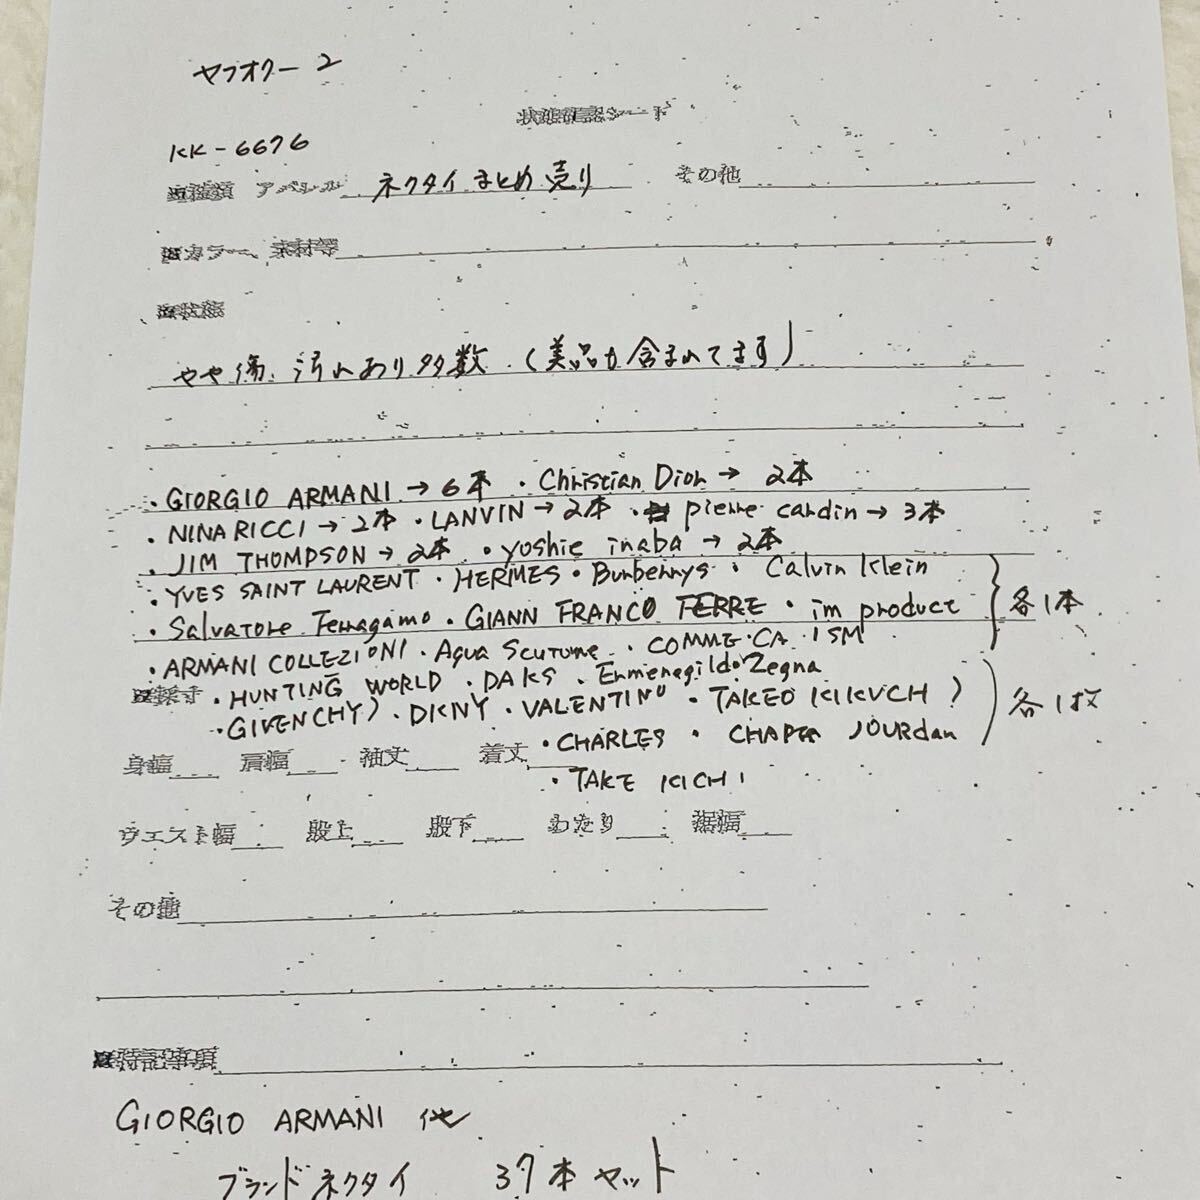 ヤフオクー2
状態確認シート
KK-6676
■種類 アパレル ネクタイ まとめ売り その他
■カラー 素材等
■状態
やや傷、汚れあり多数(美品も含まれてます)
・GIORGIO ARMANI→6本 ・Christian Dior→ 2本
・NINA RICCI→2本 ・LANVIN→2本 ・pierre cardin→3本
・JIM THOMPSON→2本 ・yoshie inaba→2本
・YVES SAINT LAURENT・HERMES・Burberrys・Calvin Klein
・Salvatore Ferragamo・GIANN FRANCO FERRE・im product 各1本
・ARMANI COLLEZIONI・Aqua Scutume・COMME・CA ISM
■採寸・HUNTING WORLD・DAKS・Ermenegildo Zegna
・GIVENCHY)・DKNY・VALENTINO・TAKEO KIKUCHI) 各1枚
・CHARLES・ JOURdan
身幅 肩幅 袖丈 着丈
・TAKE KICHI
ウエスト幅 股上 股下 わたり 裾幅
その他
■特記事項
GIORGIO ARMANI 他
ブランドネクタイ 37本セット